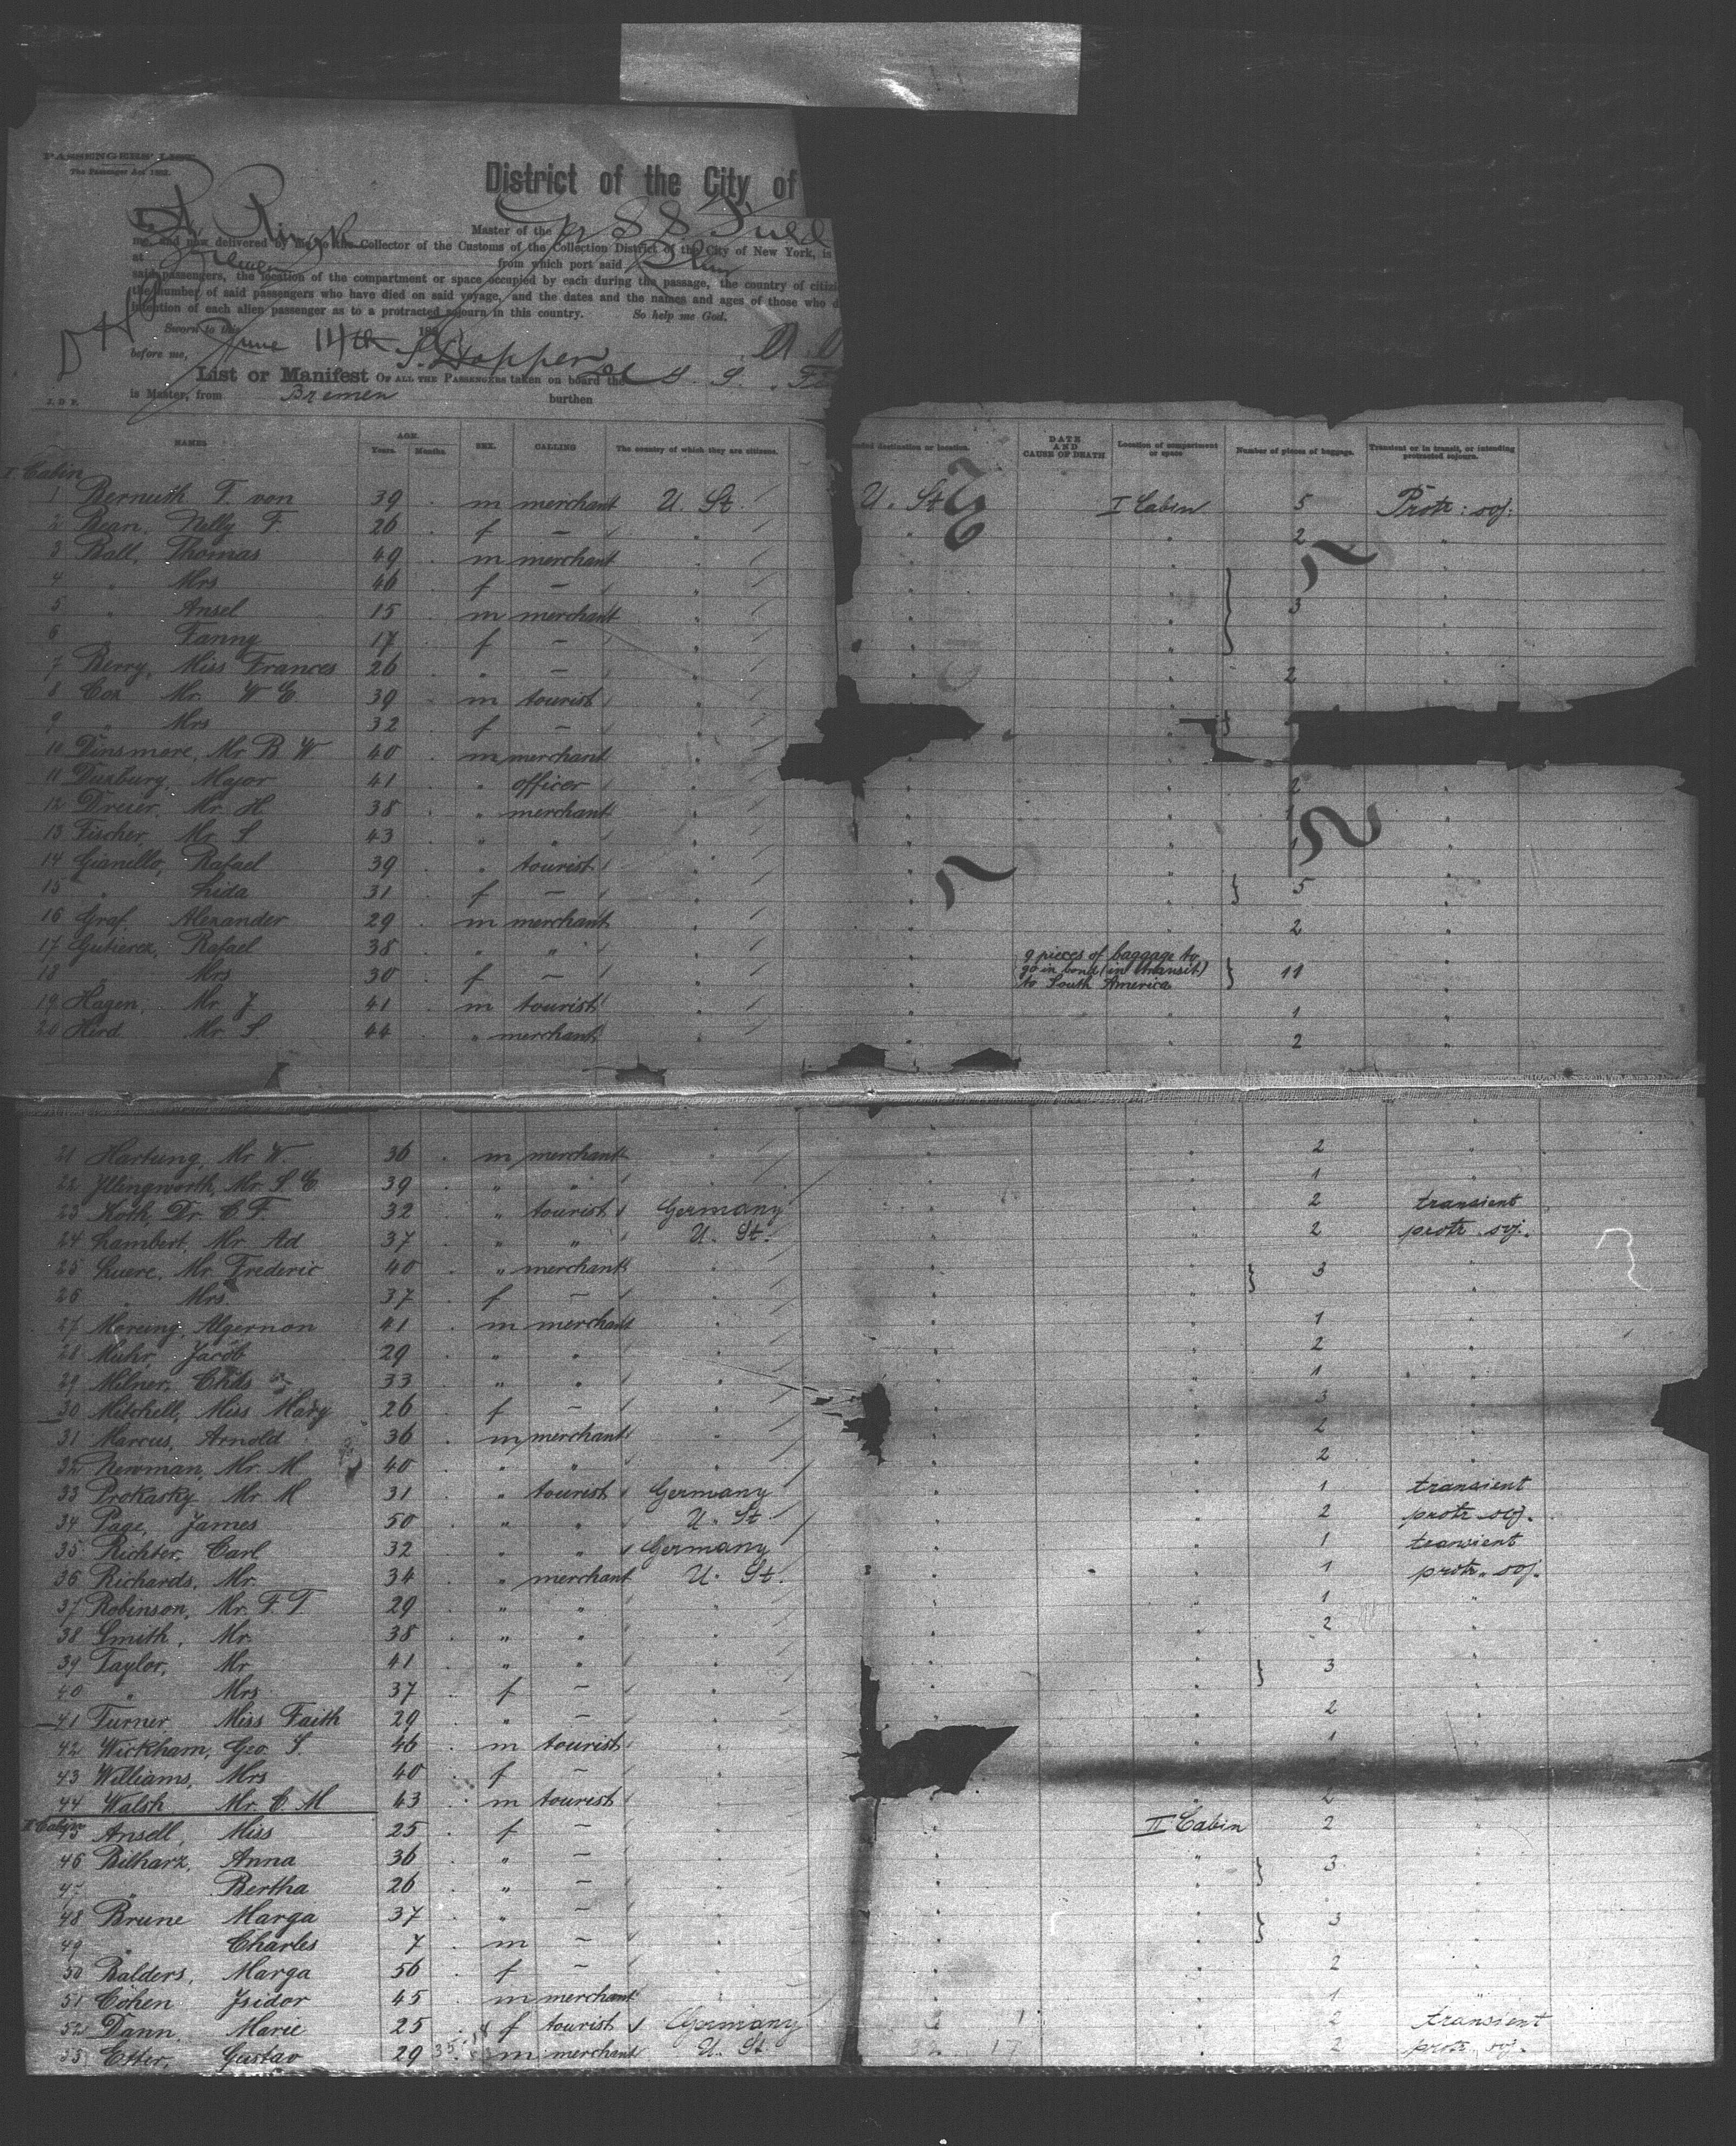 PASSENGERS' LIST.
The Passenger Act 1882.
District of the City of
I, R. Ringk Master of the Gr. S. S. Fuld
me, and now delivered by me to the Collector of the Customs of the Collection District of the City of New York, is
at Bremen from which port said
said passengers, the location of the compartment or space occupied by each during the passage, the country of citiz
the number of said passengers who have died on said voyage, and the dates and the names and ages of those who d
intention of each alien passenger as to a protracted sojourn in this country. So help me God.
Sworn to this June 14th 189
before me, S. Hopper
List or Manifest OF ALL THE PASSENGERS taken on board the S. S.
is Master, from Bremen burthen
NAMES AGE. Years. Months. SEX. CALLING The country of which they are citizens. nded destination or location. DATE AND CAUSE OF DEATH Location of compartment or space Number of pieces of baggage. Transient or in transit, or intending protracted sojourn.
I. Cabin
1 Bernuth F. von 39 m merchant U. St. U. St. I Cabin 5 Protr: soj:
2 Bean, Nelly F. 26 f — " " " 2 "
3 Ball, Thomas 49 m merchant
4 " Mrs 46 f —
5 " Ansel 15 m merchant } 3
6 " Fanny 17 f —
7 Berry, Miss Frances 26 " — 2
8 Cox Mr. W E. 39 m tourist
9 " Mrs 32 f —
10 Dinsmore, Mr B. W. 40 m merchant
11 Duxbury, Major 41 " officer 2
12 Dreier, Mr. H 38 " merchant 1
13 Fischer, Mr. S 43 " " 1
14 Gianello, Rafael 39 " tourist
15 " Lida 31 f — } 5
16 Graf, Alexander 29 m merchant 2
17 Gutierez, Rafael 38 " " 9 pieces of baggage to
18 " Mrs 30 f — go in bond (in transit) } 11
to South America
19 Hagen, Mr. J 41 m tourist 1
20 Hird Mr. S. 44 " merchant 2
21 Hartung, Mr W. 36 m merchant 2
22 Illingworth, Mr. S E. 39 " " 1
23 Koth, Dr. C. F. 32 " tourist Germany 2 transient
24 Lambert, Mr. Ad 37 " " U. St. 2 protr. soj.
25 Luere, Mr. Frederic 40 " merchant } 3
26 " Mrs. 37 f —
27 Moreing, Algernon 41 m merchant 1
28 Muhr, Jacob 29 " " 2
29 Milner, Chas 33 " " 1
30 Mitchell, Miss Mary 26 f — 3
31 Marcus, Arnold 36 m merchant 2
32 Newman, Mr. M 40 " " 2
33 Prokasky Mr M 31 " tourist Germany 1 transient
34 Page, James 50 " " U. St. 2 protr. soj.
35 Richter, Carl 32 " " Germany 1 transient
36 Richards, Mr. 34 " merchant U. St. 1 protr. soj.
37 Robinson, Mr. F. T. 29 " " 1
38 Smith, Mr. 38 " " 2
39 Taylor, Mr 41 " " } 3
40 " Mrs 37 f —
41 Turner Miss Faith 29 " — 2
42 Wickham, Geo. S. 46 m tourist 1
43 Williams, Mrs 40 f —
44 Walsh Mr. C. M 43 m tourist 2
II Cabin
45 Ansell, Miss 25 f — II Cabin 2
46 Bilharz, Anna 36 " — } 3
47 " Bertha 26 " —
48 Brune Marga 37 " — } 3
49 " Charles 7 m —
50 Balders, Marga 56 f — 2
51 Cohen Isidor 45 m merchant 1
52 Dann, Marie 25 f tourist Germany 2 transient
53 Etter, Gustav 29 m merchant U. St. 2 protr. soj.